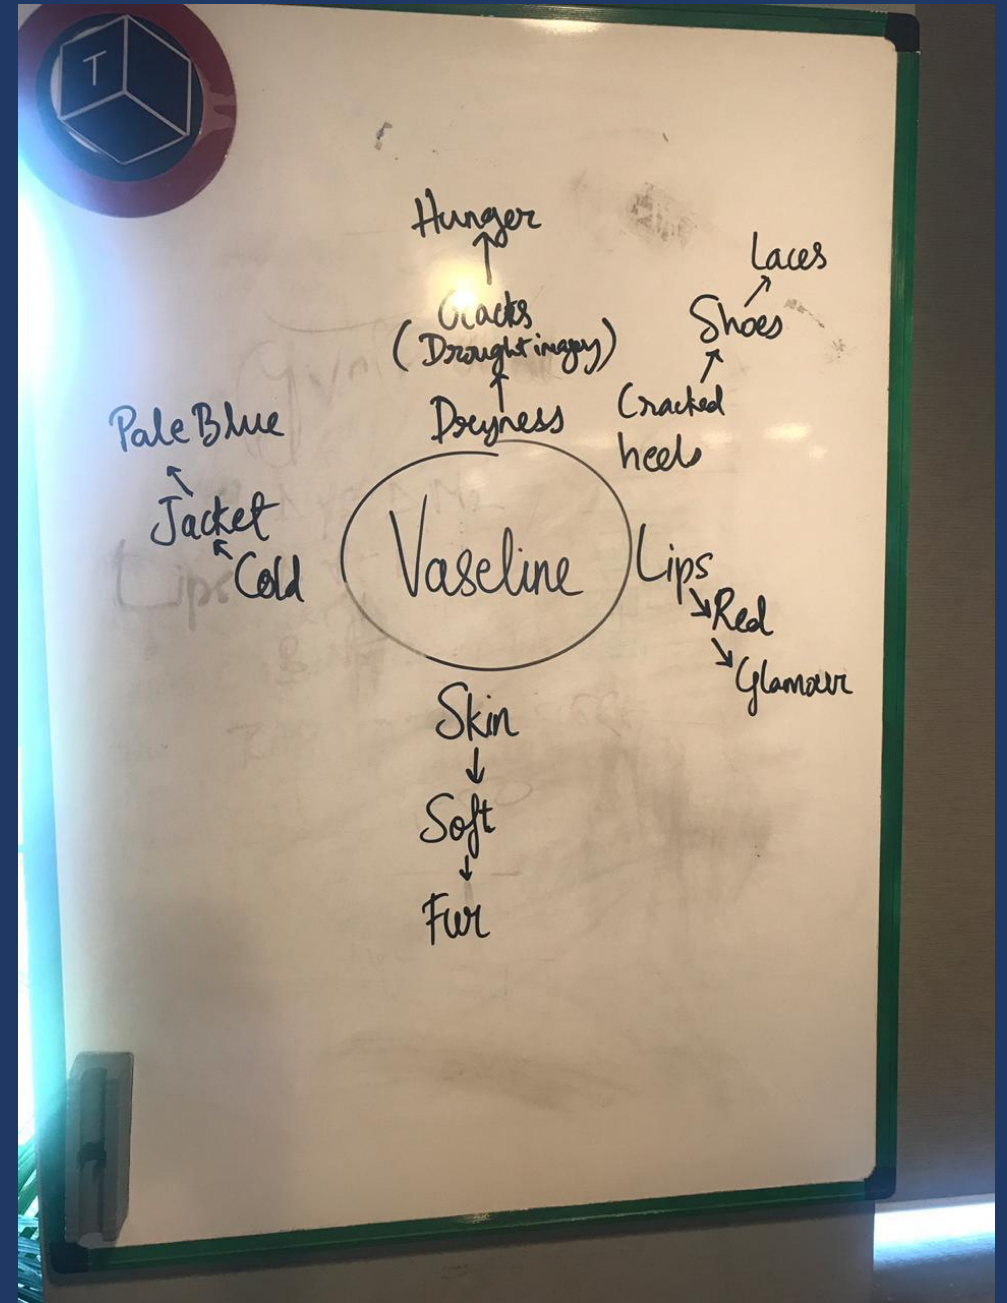 T
Hunger
Cracks
(Drought imagery)
Dryness
Laces
Shoes
Cracked
heels
Pale Blue
Jacket
Cold
Vaseline
Lips
Red
Glamour
Skin
Soft
Fur